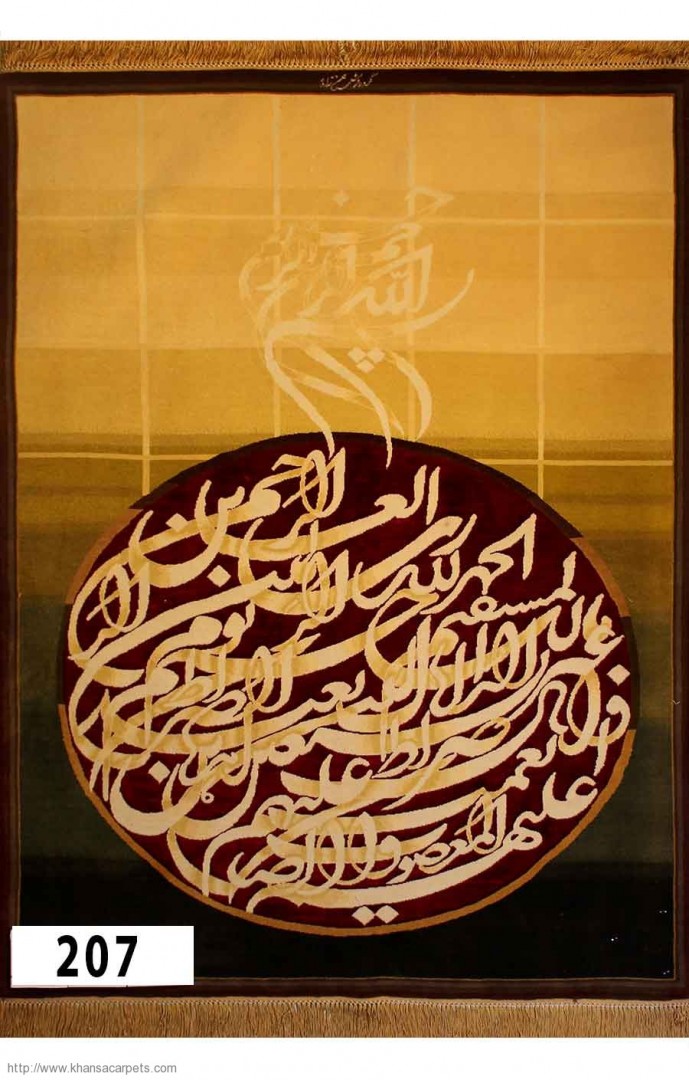 بسم الله الرحمن الرحیم
الحمد لله رب العالمین
الرحمن الرحیم
مالک یوم الدین
ایاک نعبد
و ایاک نستعین
اهدنا الصراط المستقیم
صراط الذین انعمت علیهم
غیر المغضوب علیهم
ولا الضالین
207
http://www.khansacarpets.com